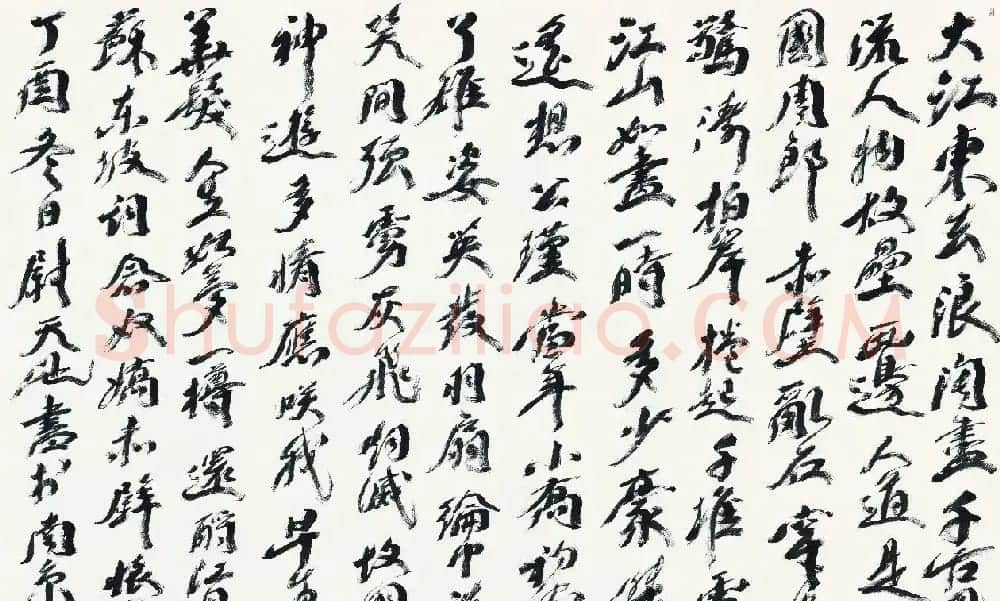 大江東去浪淘盡千古
流人物故壘西邊人道是
國周郎赤壁亂石穿
驚濤拍岸捲起千堆
江山如畫一時多少豪
遙想公瑾當年小喬初
了雄姿英發羽扇綸巾
笑間强虜灰飛烟滅故國
神遊多情應咲我早生
華髮人生如夢一樽還酹江
蘇东坡词念奴嬌赤壁懷
丁酉冬日尉天池書於南京
Shufaziliao.COM